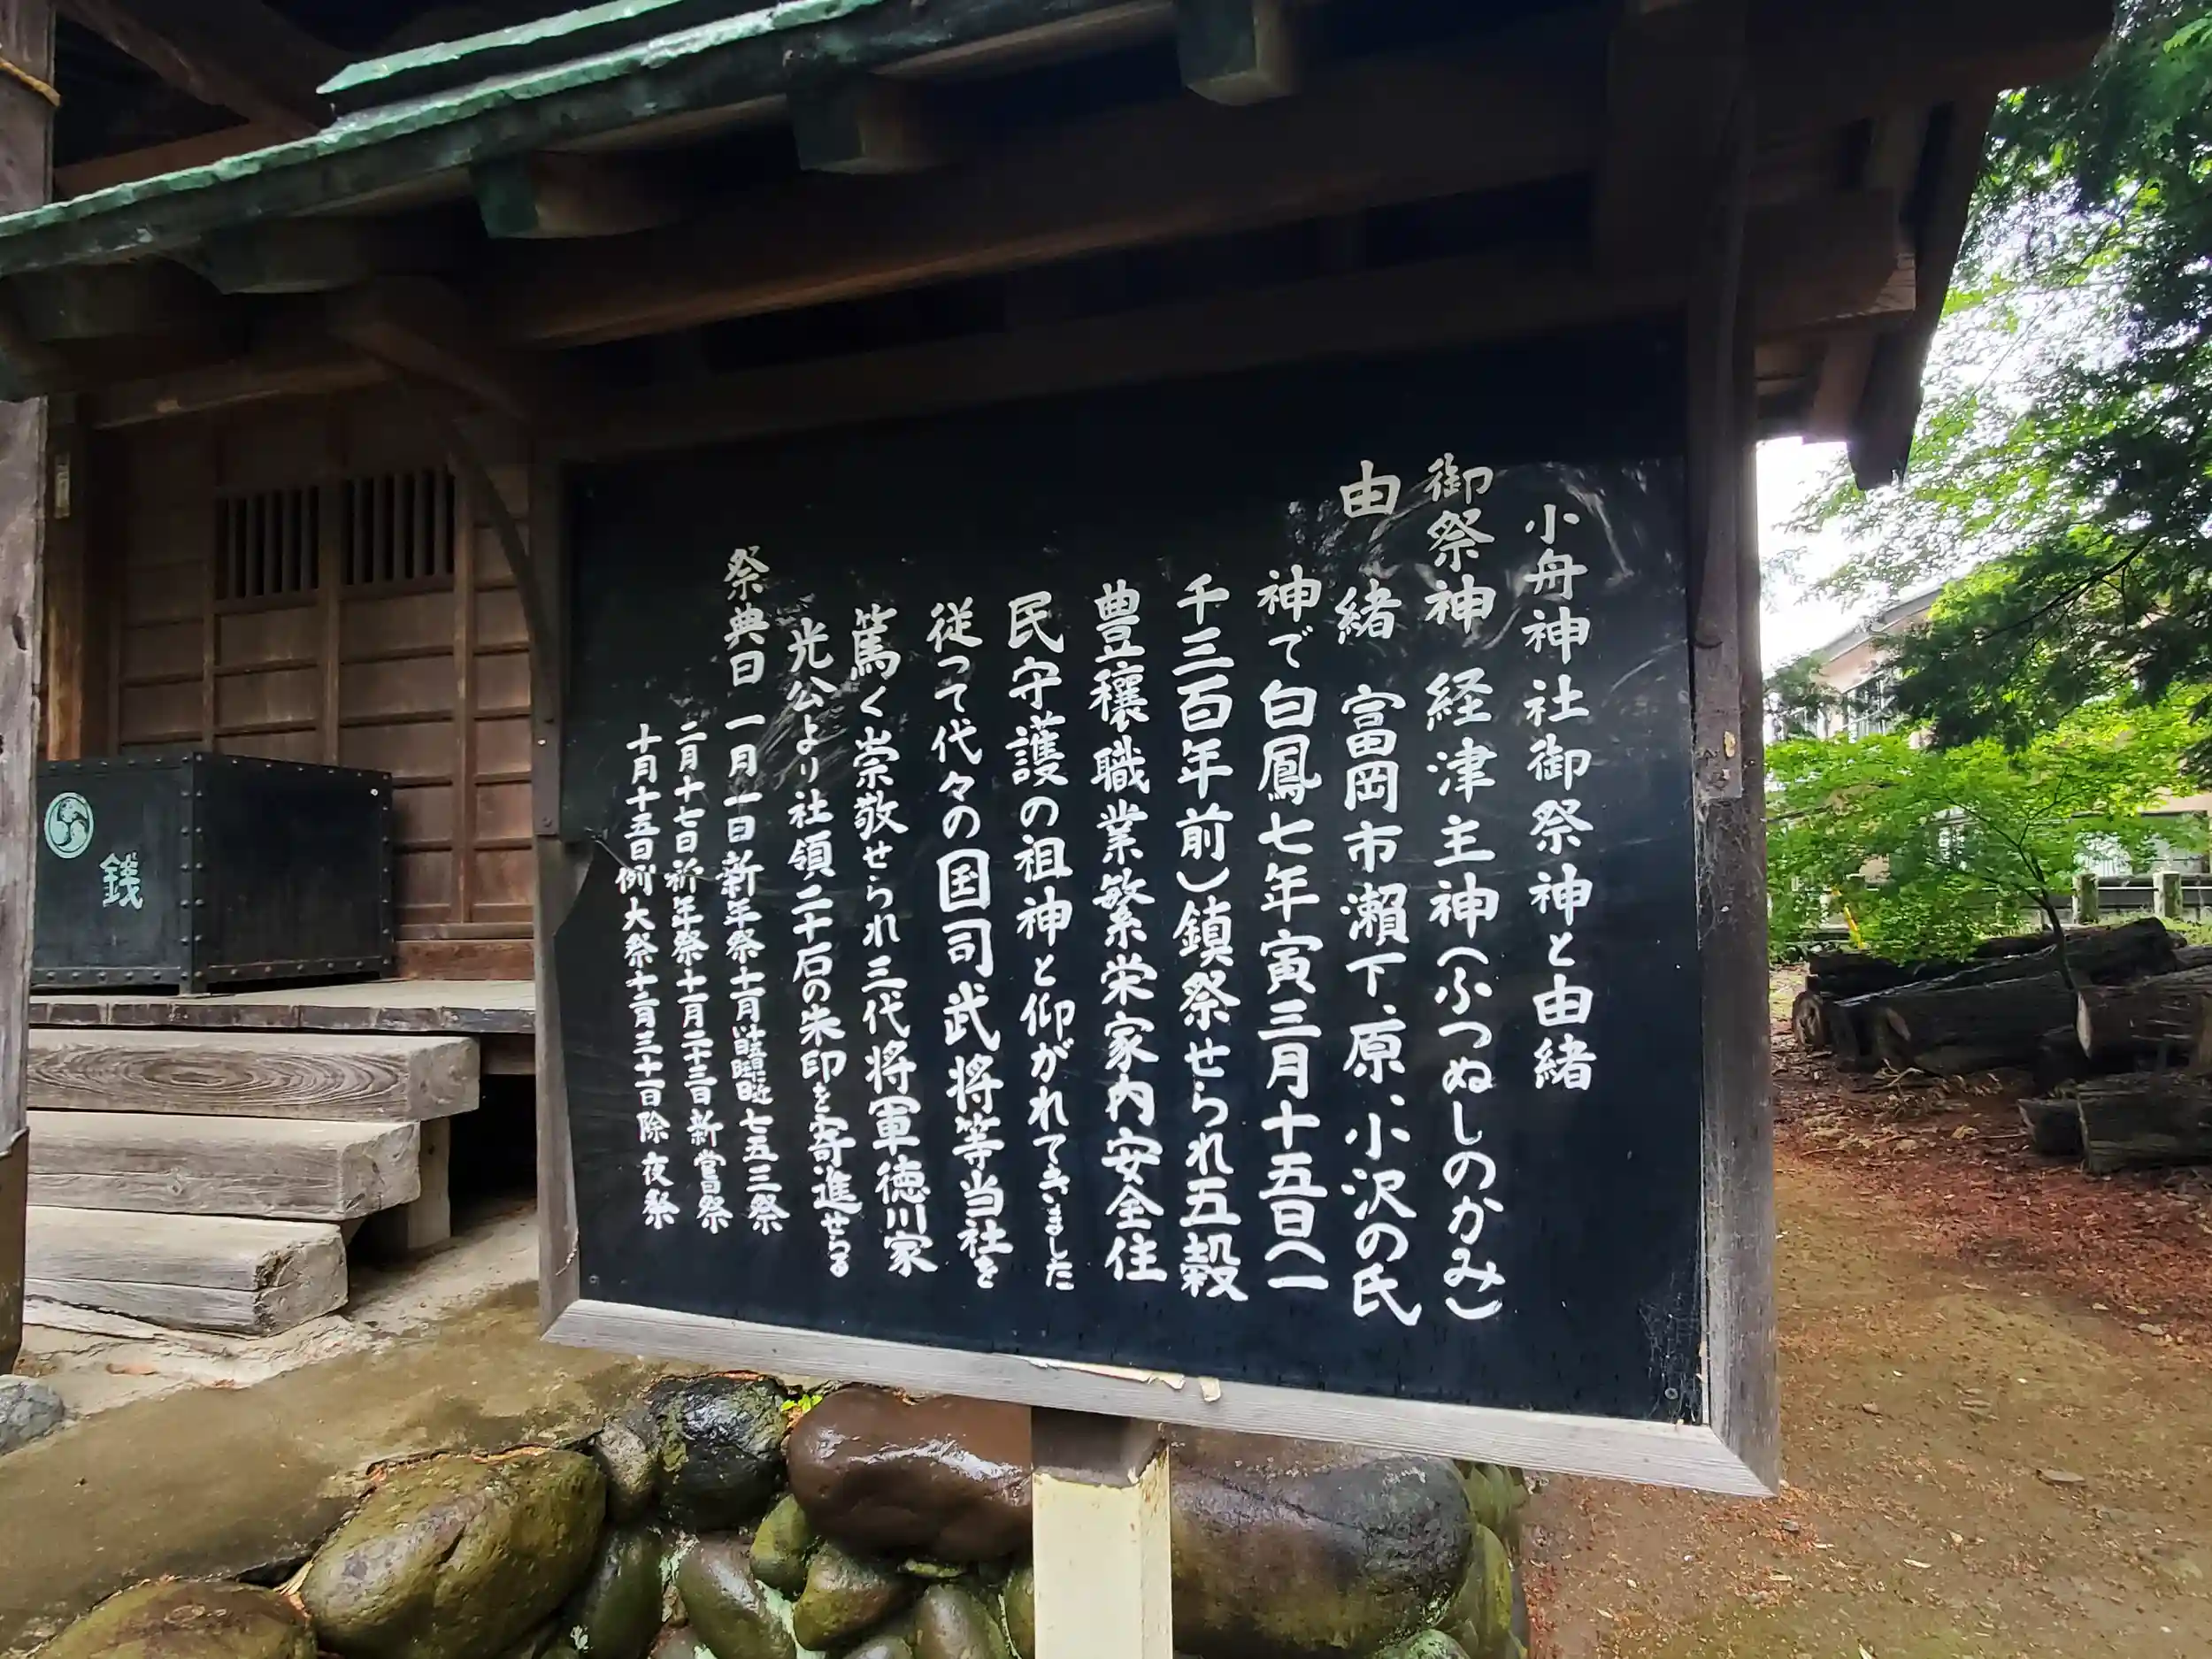 小舟神社御祭神と由緒
御祭神 経津主神(ふつぬしのかみ)
由緒 富岡市瀬下、原、小沢の氏
神で白鳳七年寅三月十五日(一
千三百年前)鎮祭せられ五穀
豊穣職業繁栄家内安全住
民守護の祖神と仰がれてきました
従つて代々の国司武将等当社を
篤く崇敬せられ三代将軍徳川家
光公より社領二十石の朱印を寄進せらる
祭典日 一月一日新年祭十一月 七五三祭
二月十七日祈年祭十一月二十三日新嘗祭
十月十五日例大祭十二月三十一日除夜祭
銭